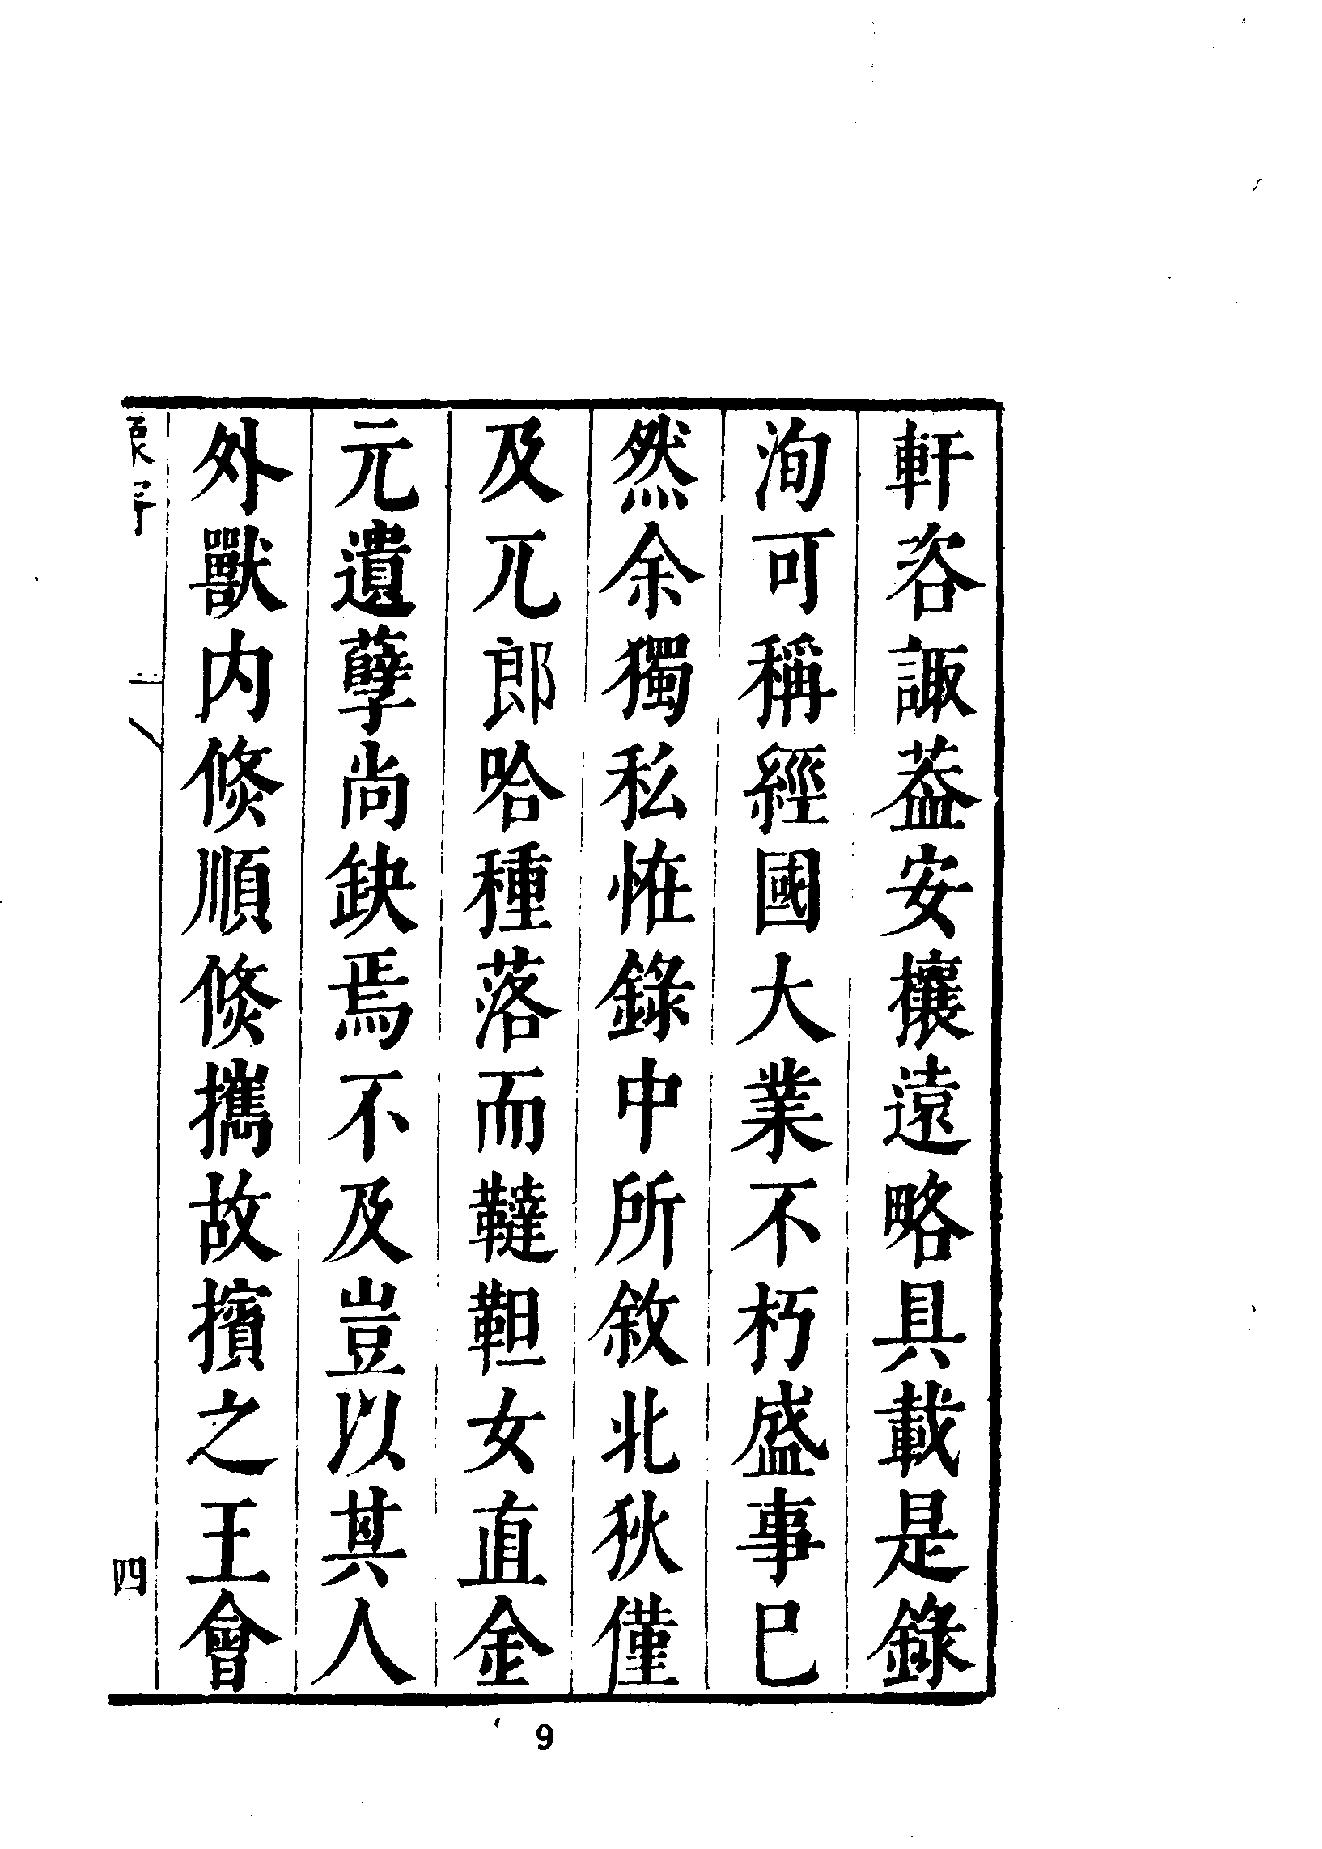 軒咨諏葢安攘遠略具載是錄
洵可稱經國大業不朽盛事巳
然余獨私恠錄中所敘北狄僅
及兀郎哈種落而韃靼女直金
元遺孽尚缺焉不及豈以其人
外獸内倐順倐攜故擯之王會
四
9